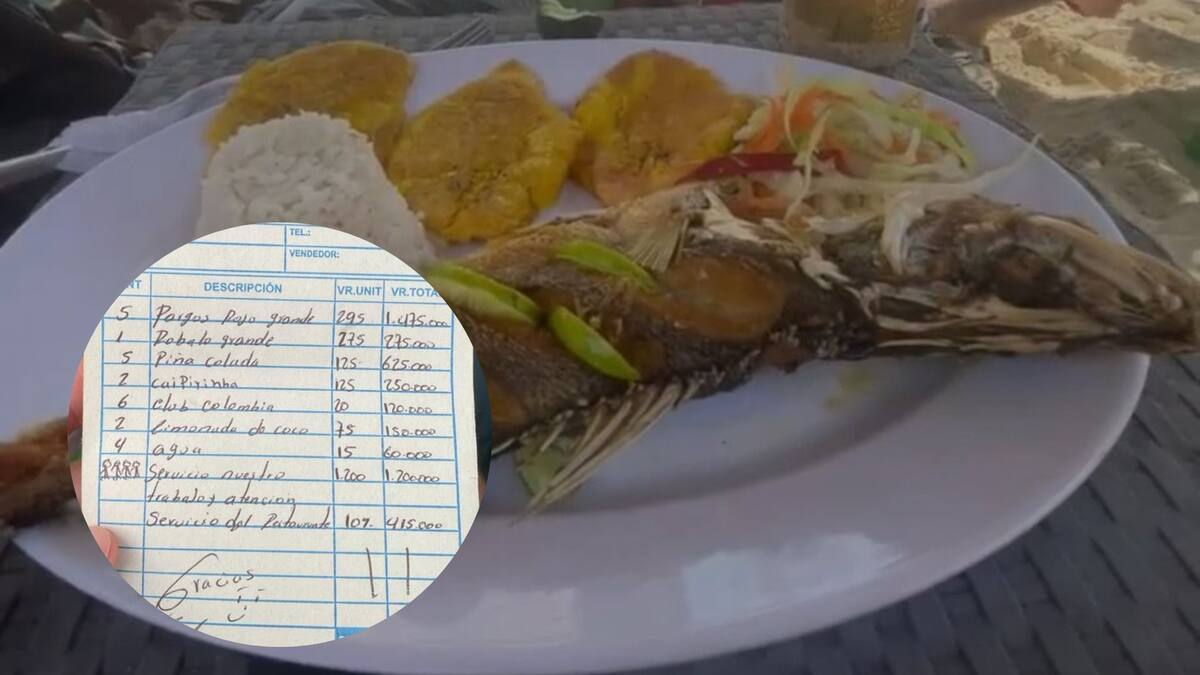 TEL.:
VENDEDOR:
NT DESCRIPCIÓN VR.UNIT VR.TOTA
5 Pargos Rojo grande 295 1.475.000
1 Robalo grande 275 275.000
5 Piña colada 125 625.000
2 caiPirinha 125 250.000
6 club colombia 20 120.000
2 limonada de coco 75 150.000
4 agua 15 60.000
Servicio nuestro 1.200 1.200.000
trabajo y atencion
Servicio del 10% 415.000
Gracias